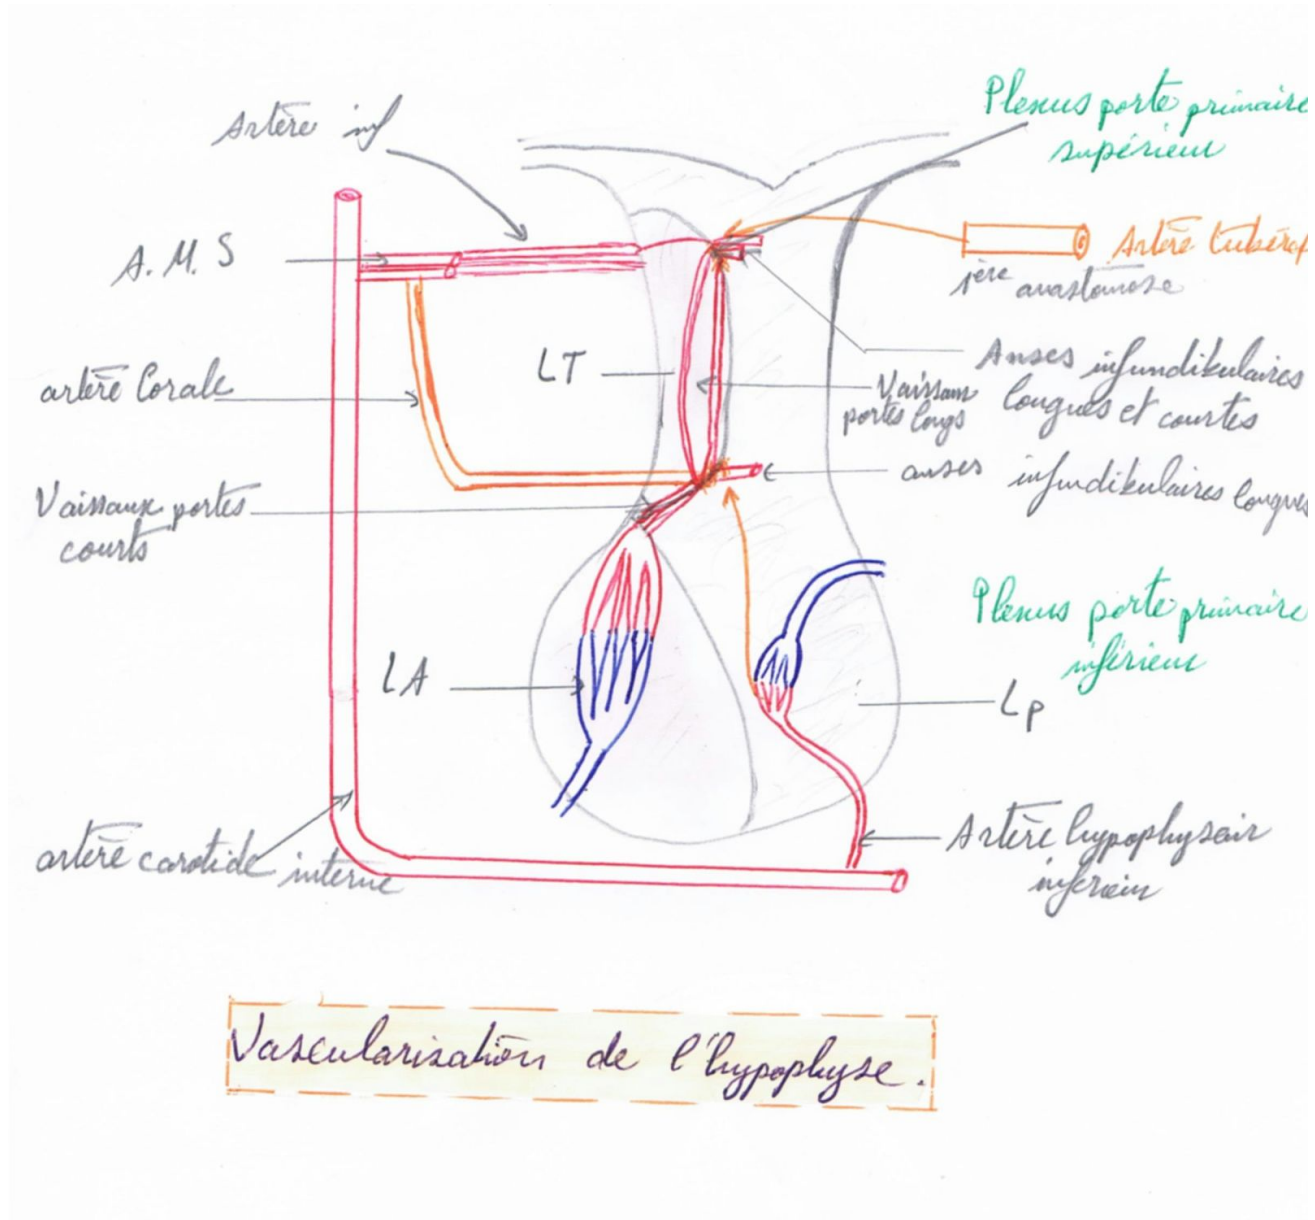 Artère inf
Plexus porte primaire
supérieur
A.M.S
Artère tubéra
1ère anastomose
artère Lorale
LT
Vaissau
portes longs
Anses infundibulaires
longues et courtes
anses infundibulaires longues
Vaissaux portes
courts
Plexus porte primaire
inférieur
LA
Lp
artère carotide interne
Artère hypophysair
inferieur
Vascularisation de l'hypophyse.